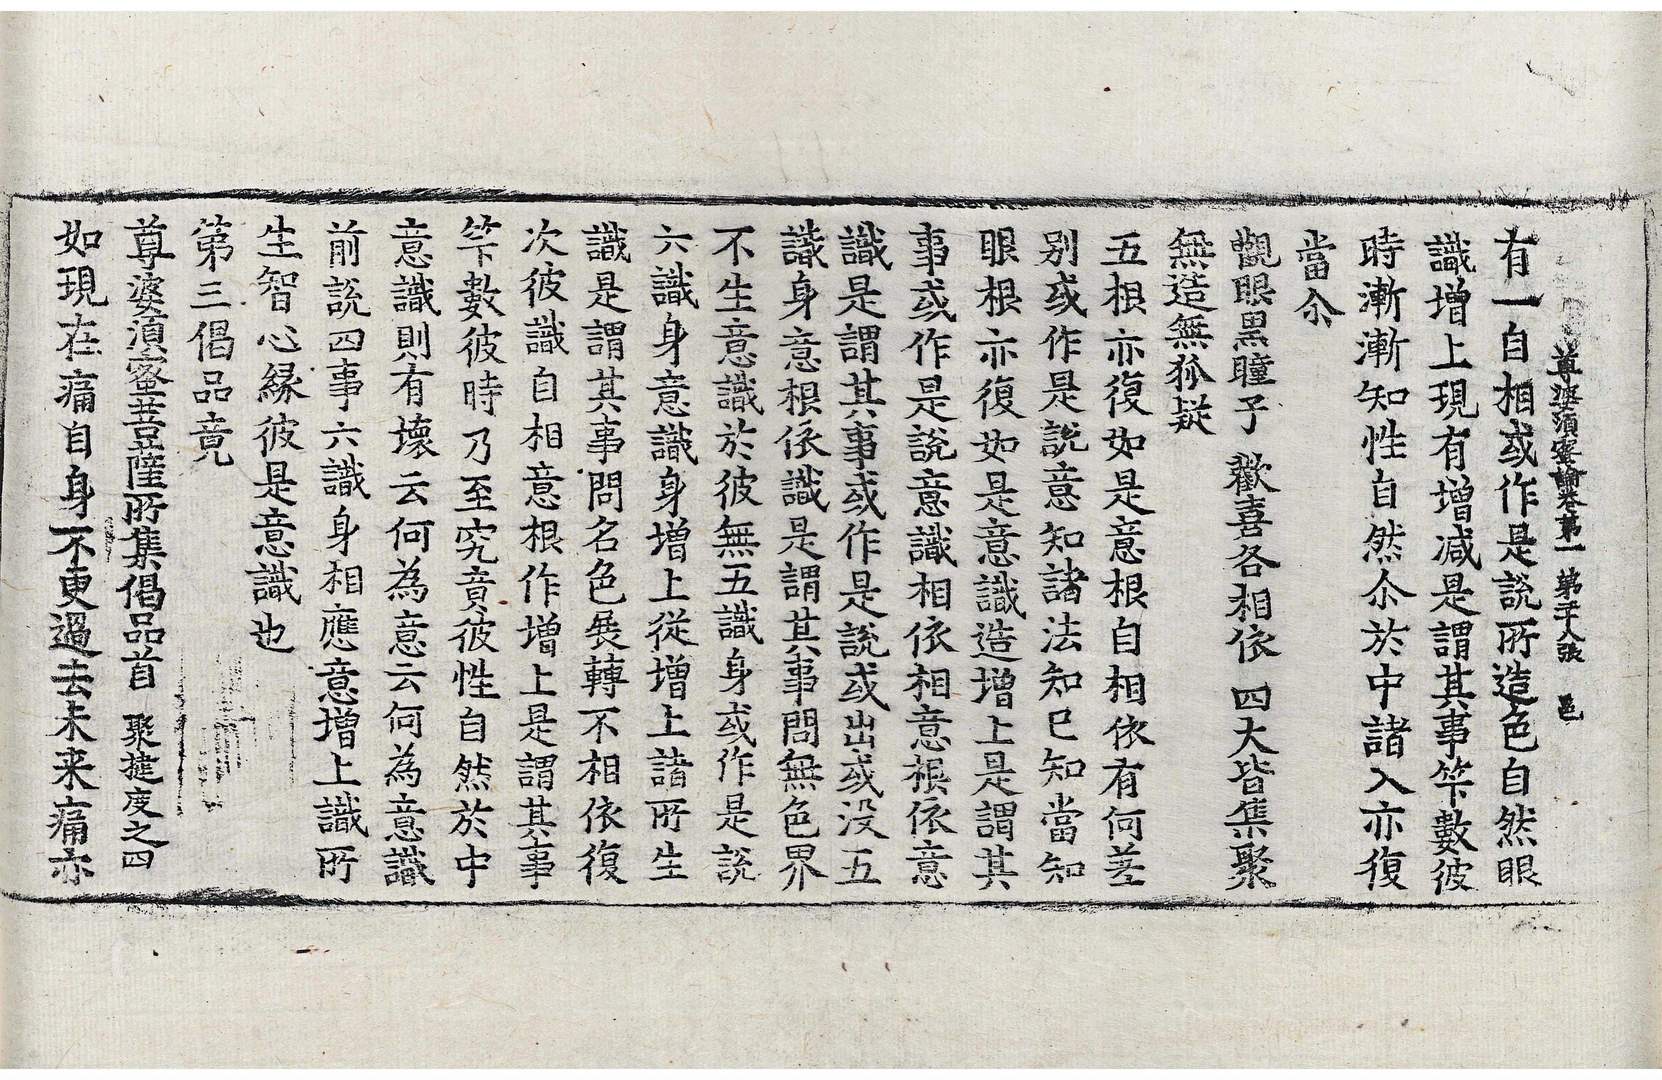 尊婆須蜜論卷第一 第二十八張 邑
有一自相或作是說所造色自然眼
識增上現有增減是謂其事等數彼
時漸漸知性自然尒於中諸入亦復
當尒
觀眼黑瞳子 歡喜各相依 四大皆集聚
無造無狐疑
五根亦復如是意根自相依有何差
別或作是說意知諸法知已知當知
眼根亦復如是意識造增上是謂其
事或作是說意識相依相意根依意
識是謂其事或作是說或出或沒五
識身意根依識是謂其事問無色界
不生意識於彼無五識身或作是說
六識身意識身增上從增上諸所生
識是謂其事問名色展轉不相依復
次彼識自相意根作增上是謂其事
等數彼時乃至究竟彼性自然於中
意識則有壞云何為意云何為意識
前說四事六識身相應意增上識所
生智心緣彼是意識也
第三偈品竟
尊婆須蜜菩薩所集偈品首 聚揵度之四
如現在痛自身不更過去未来痛亦